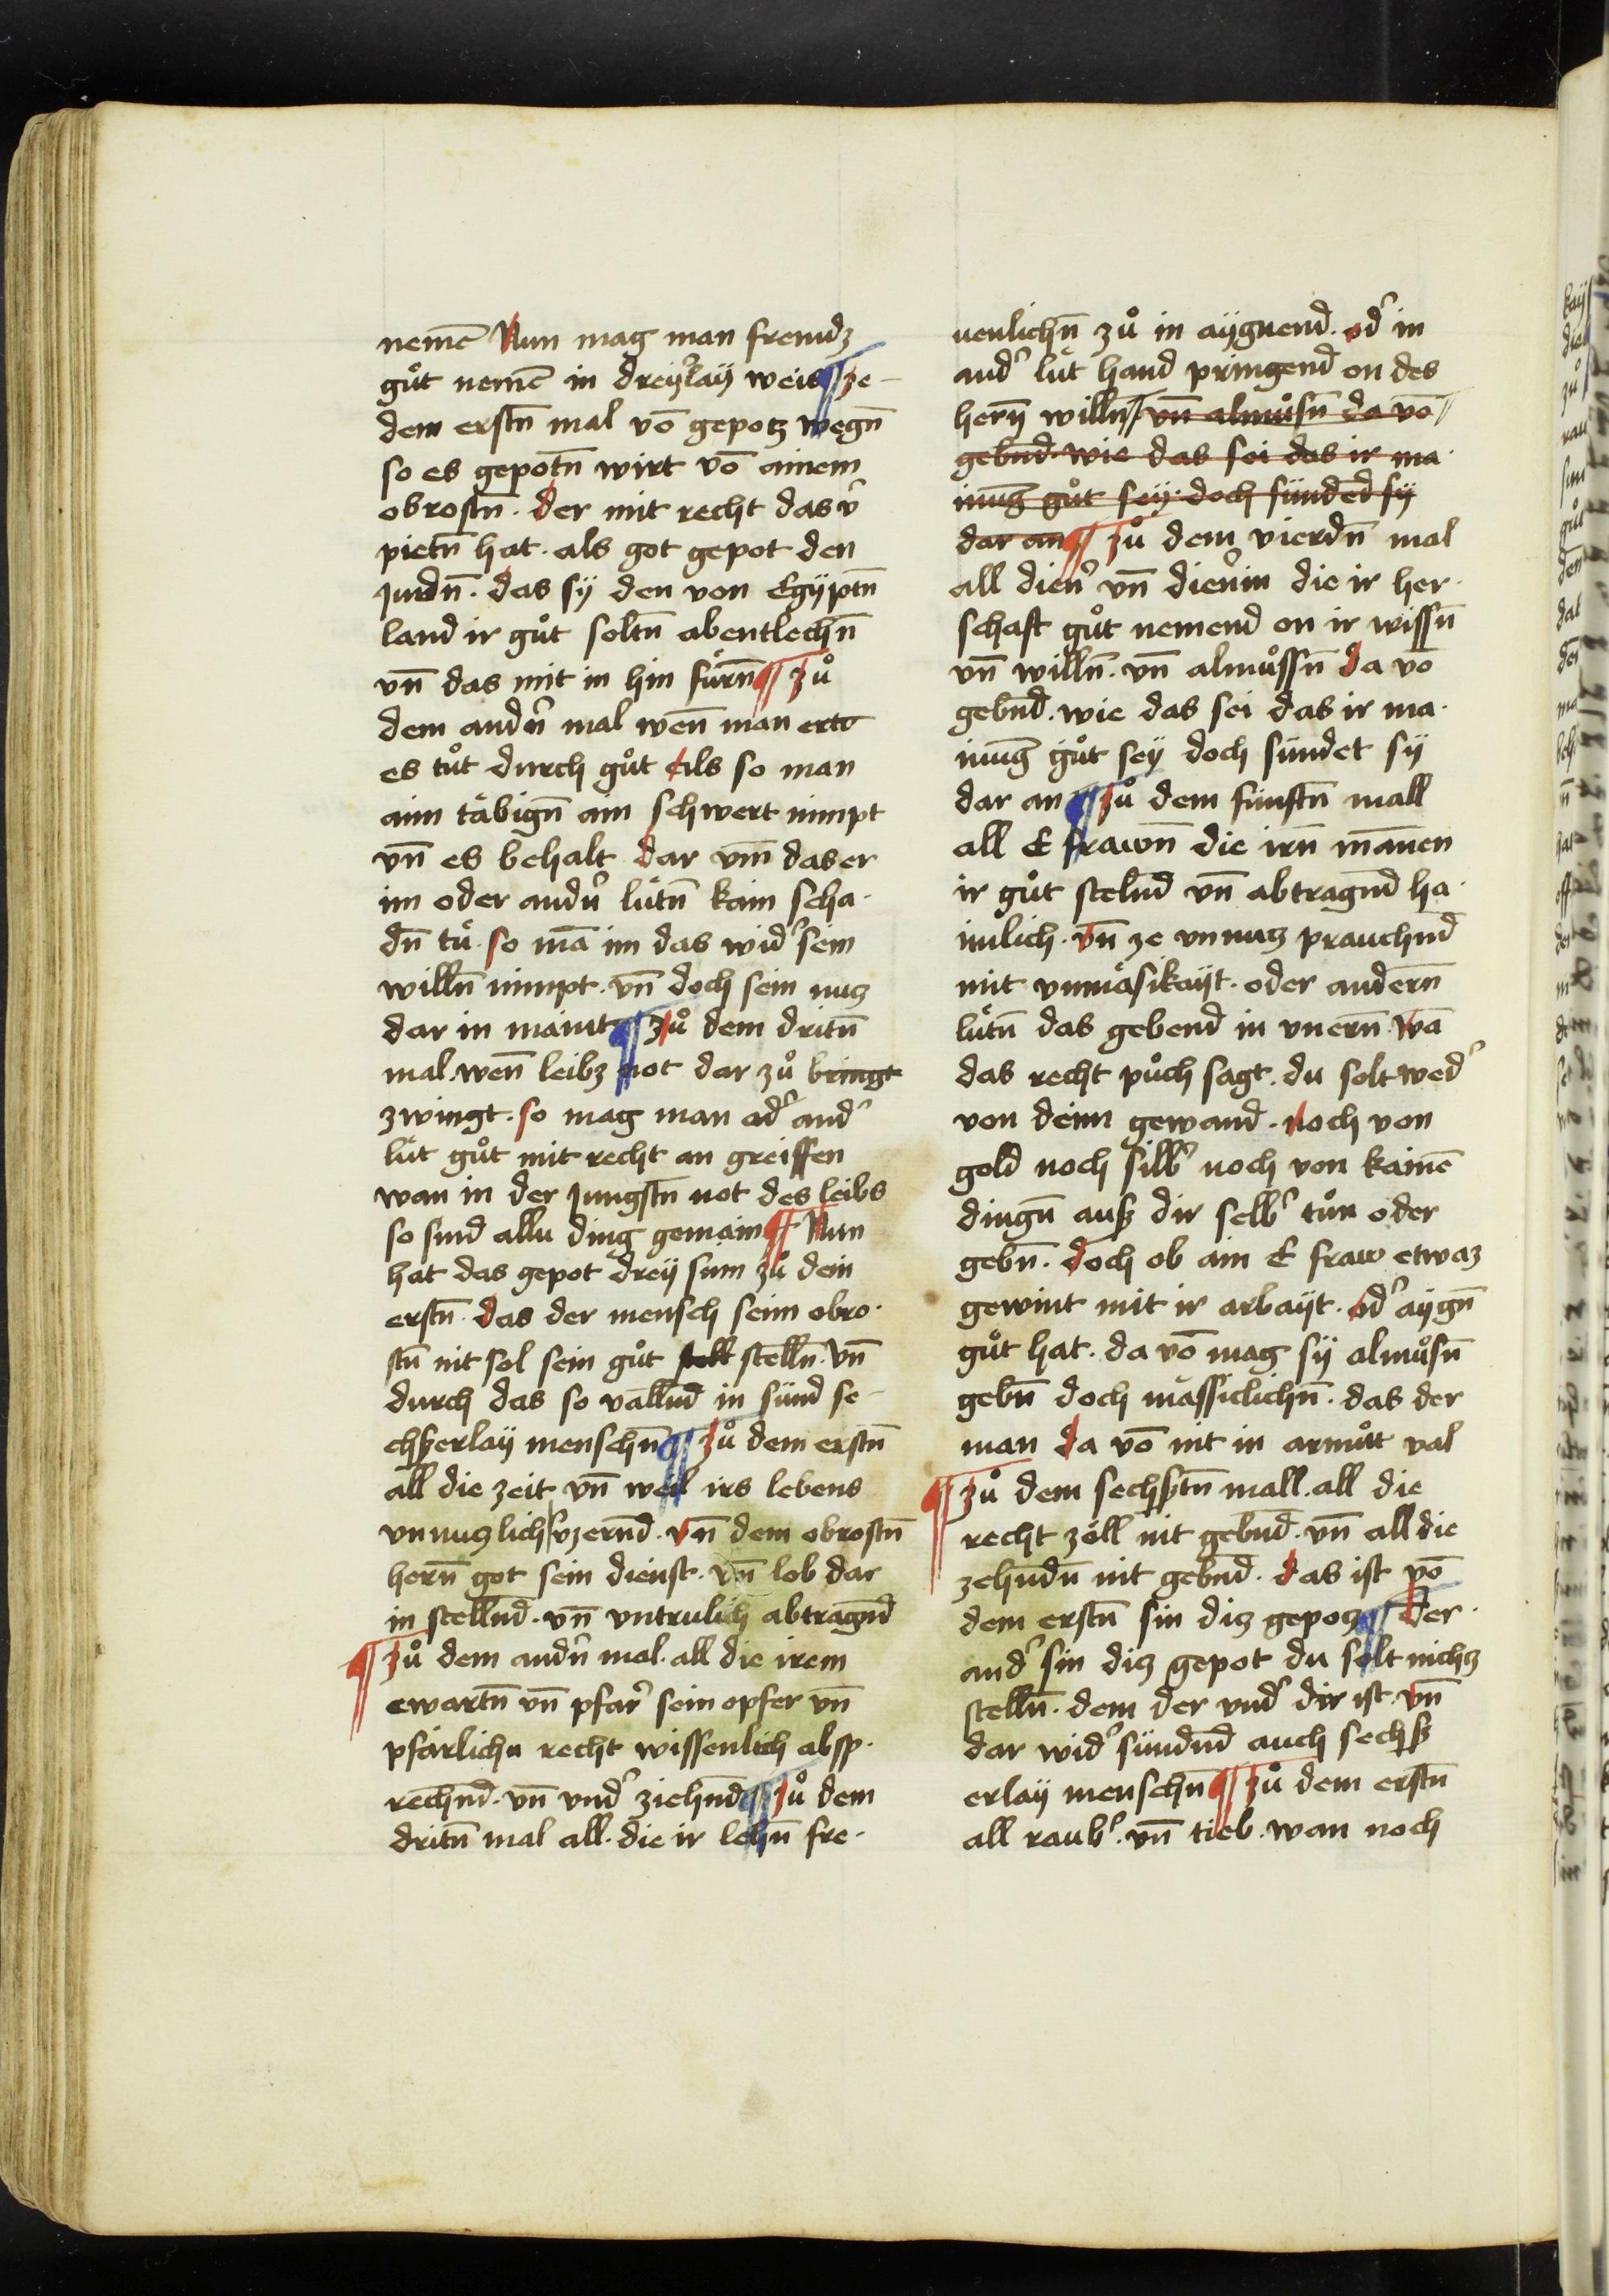 nemē Nun mag man fremdz
gůt nemē in dreÿ᷑laÿ weis ¶ ze-
dem erstn̄ mal vō gepotz wegn̄
so es gepotn̄ wirt vō ainem
obrostn̄. der mit recht das v᷑
pietn̄ hat. als got gepot den
Judn̄. das sÿ den von Egÿptn̄
land ir gůt soltn̄ abentlechn̄
vn̄ das mit in hin fůrn̄ ¶ zů
dem andn᷑ mal wen̄ man erto
es tůt durch gůt als so man
aim täbign̄ ain schwert nimpt
vn̄ es behalt dar vm̄ das er
im oder andn᷑ lütn̄ kain scha-
dn̄ tů. so mā im das wid᷑ seim
willn̄ nimpt. vn̄ doch sein nuz
dar in maint ¶ zů dem dritn̄
mal. wen̄ leibz not dar zů bringt
zwingt. so mag man od᷑ and᷑
lüt gůt mit recht an greiffen
wan in der Jungstn̄ not des leibs
so sind allu ding gemain ¶ Nun
hat das gepot dreÿ sinn zů dem
erstn̄. das der mensch seim obro-
stn̄ nit sol sein gůt stell stelln̄. vn̄
durch das so vallnd̄ in sünd se-
chßerlaÿ menschn̄ ¶ zů dem erstn̄
all die zeit vn̄ weil irs lebens
vnnuzlich vzernd̄. vn̄ dem obrostn̄
hern̄ got sein dienst. vn̄ lob dar
in stellnd̄. vn̄ vntrulich abtragnd̄
¶ zů dem andn᷑ mal. all die irem
ewartn̄ vn̄ pfar᷑ sein opfer vn̄
pfärlichu recht wissenlich absp-
rechnd̄. vn̄ vnd᷑ ziehnd̄ ¶ zů dem
dritn̄ mal all. die ir lehn̄ fre-
uenlichn̄ zů in aÿgnend. od᷑ in
and᷑ lüt hand pringend on des
hern̄ willn̄ vn̄ almůsn̄ da vō
gebnd̄. wie das sei das ir ma-
inūg gůt seÿ. doch sünded sÿ
dar an ¶ zů dem vierdn̄ mal
all dien᷑ vn̄ dien᷑in die ir her-
schaft gůt nemend on ir wissn̄
vn̄ willn̄. vn̄ almůssn̄ da vō
gebnd̄. wie das sei das ir ma-
inūg gůt seÿ doch sündet sÿ
dar an ¶ zů dem fünftn̄ mall
all E frawn̄ die irn̄ mānen
ir gůt stelnd̄ vn̄ abtragnd̄ ha-
imlich. vn̄ ze vnnuz prauchnd̄
mit vnmäsikaÿt. oder andern̄
lütn̄ das gebend in vnern̄. wā
das recht půch sagt. du solt wed᷑
von deim gewand. noch von
gold noch silb᷑ noch von kainē
dingn̄ auß dir selb᷑ tůn oder
gebn̄. doch ob ain E fraw etwaz
gewint mit ir arbaÿt. od᷑ aÿgn̄
gůt hat. da vō mag sÿ almůsn̄
gebn̄ doch mässiclichn̄. das der
man da vō nit in armůtt val
¶ zů dem sechßtn̄ mall. all die
recht zöll nit gebnd̄. vn̄ all die
zehndn̄ nit gebnd̄. das ist vō
dem erstn̄ sin diz gepotz ¶ Der
and᷑ sin diz gepot du solt nichz
stelln̄. dem der vnd᷑ dir ist. vn̄
dar wid᷑ sündnd̄ auch sechß
erlaÿ menschn̄ ¶ zů dem erstn̄
all raub᷑. vn̄ tieb. wan noch